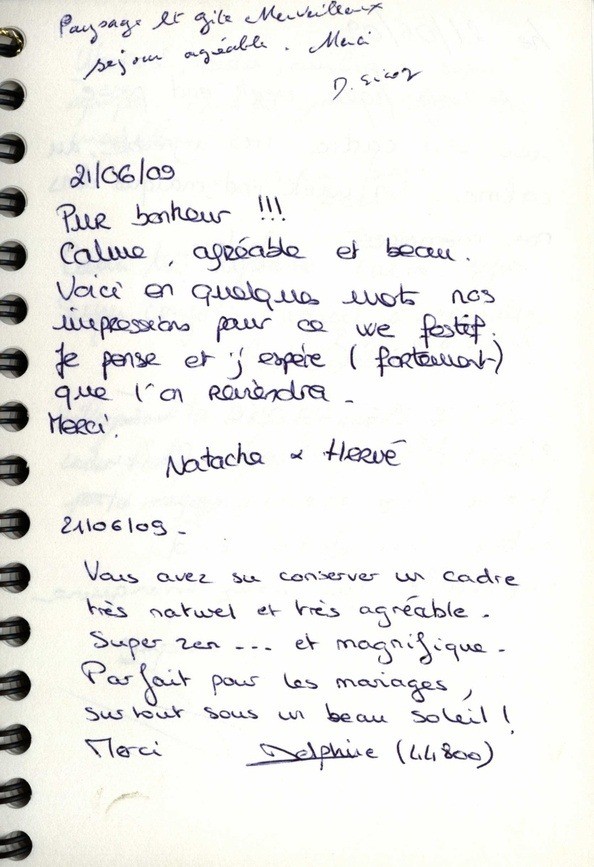 Paysage et gite Merveilleux
sejour agréable. Merci
D.
21/06/09
Pur bonheur !!!
Calme, agréable et beau.
Voici en quelques mots nos
impressions pour ce we festif.
Je pense et j'espère (fortement)
que l'on reviendra.
Merci.
Natacha & Hervé
21/06/09-
Vous avez su conserver un cadre
très naturel et très agréable.
Super zen ... et magnifique.
Parfait pour les mariages,
surtout sous un beau soleil !
Merci Delphine (44800)